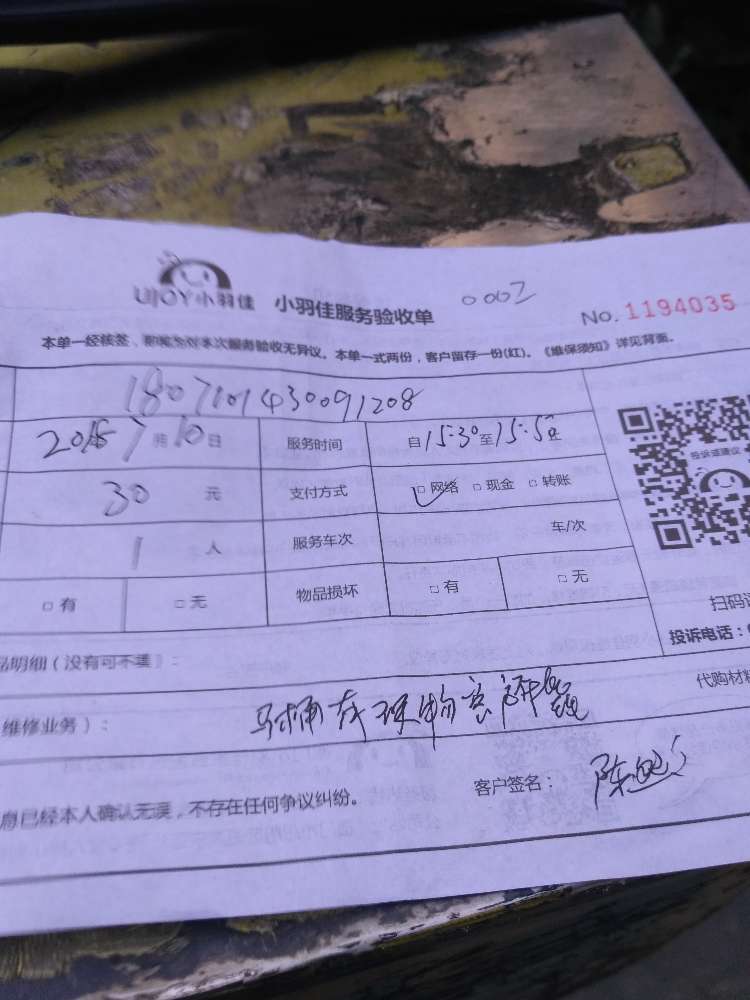 UJOY小羽佳 小羽佳服务验收单 0002 No. 1194035
本单一经核签，即视为对本次服务验收无异议。本单一式两份，客户留存一份(红)。《维保须知》详见背面。
1807101430091208
2018 7月10日 服务时间 自15:30至15:50止
30元 支付方式 □网络 □现金 □转账
1人 服务车次 车/次
□有 □无 物品损坏 □有 □无
投诉或建议
扫码
投诉电话：
品明细（没有可不填）：
代购材料
维修业务）：
马桶有 物
息已经本人确认无误，不存在任何争议纠纷。 客户签名： 陈